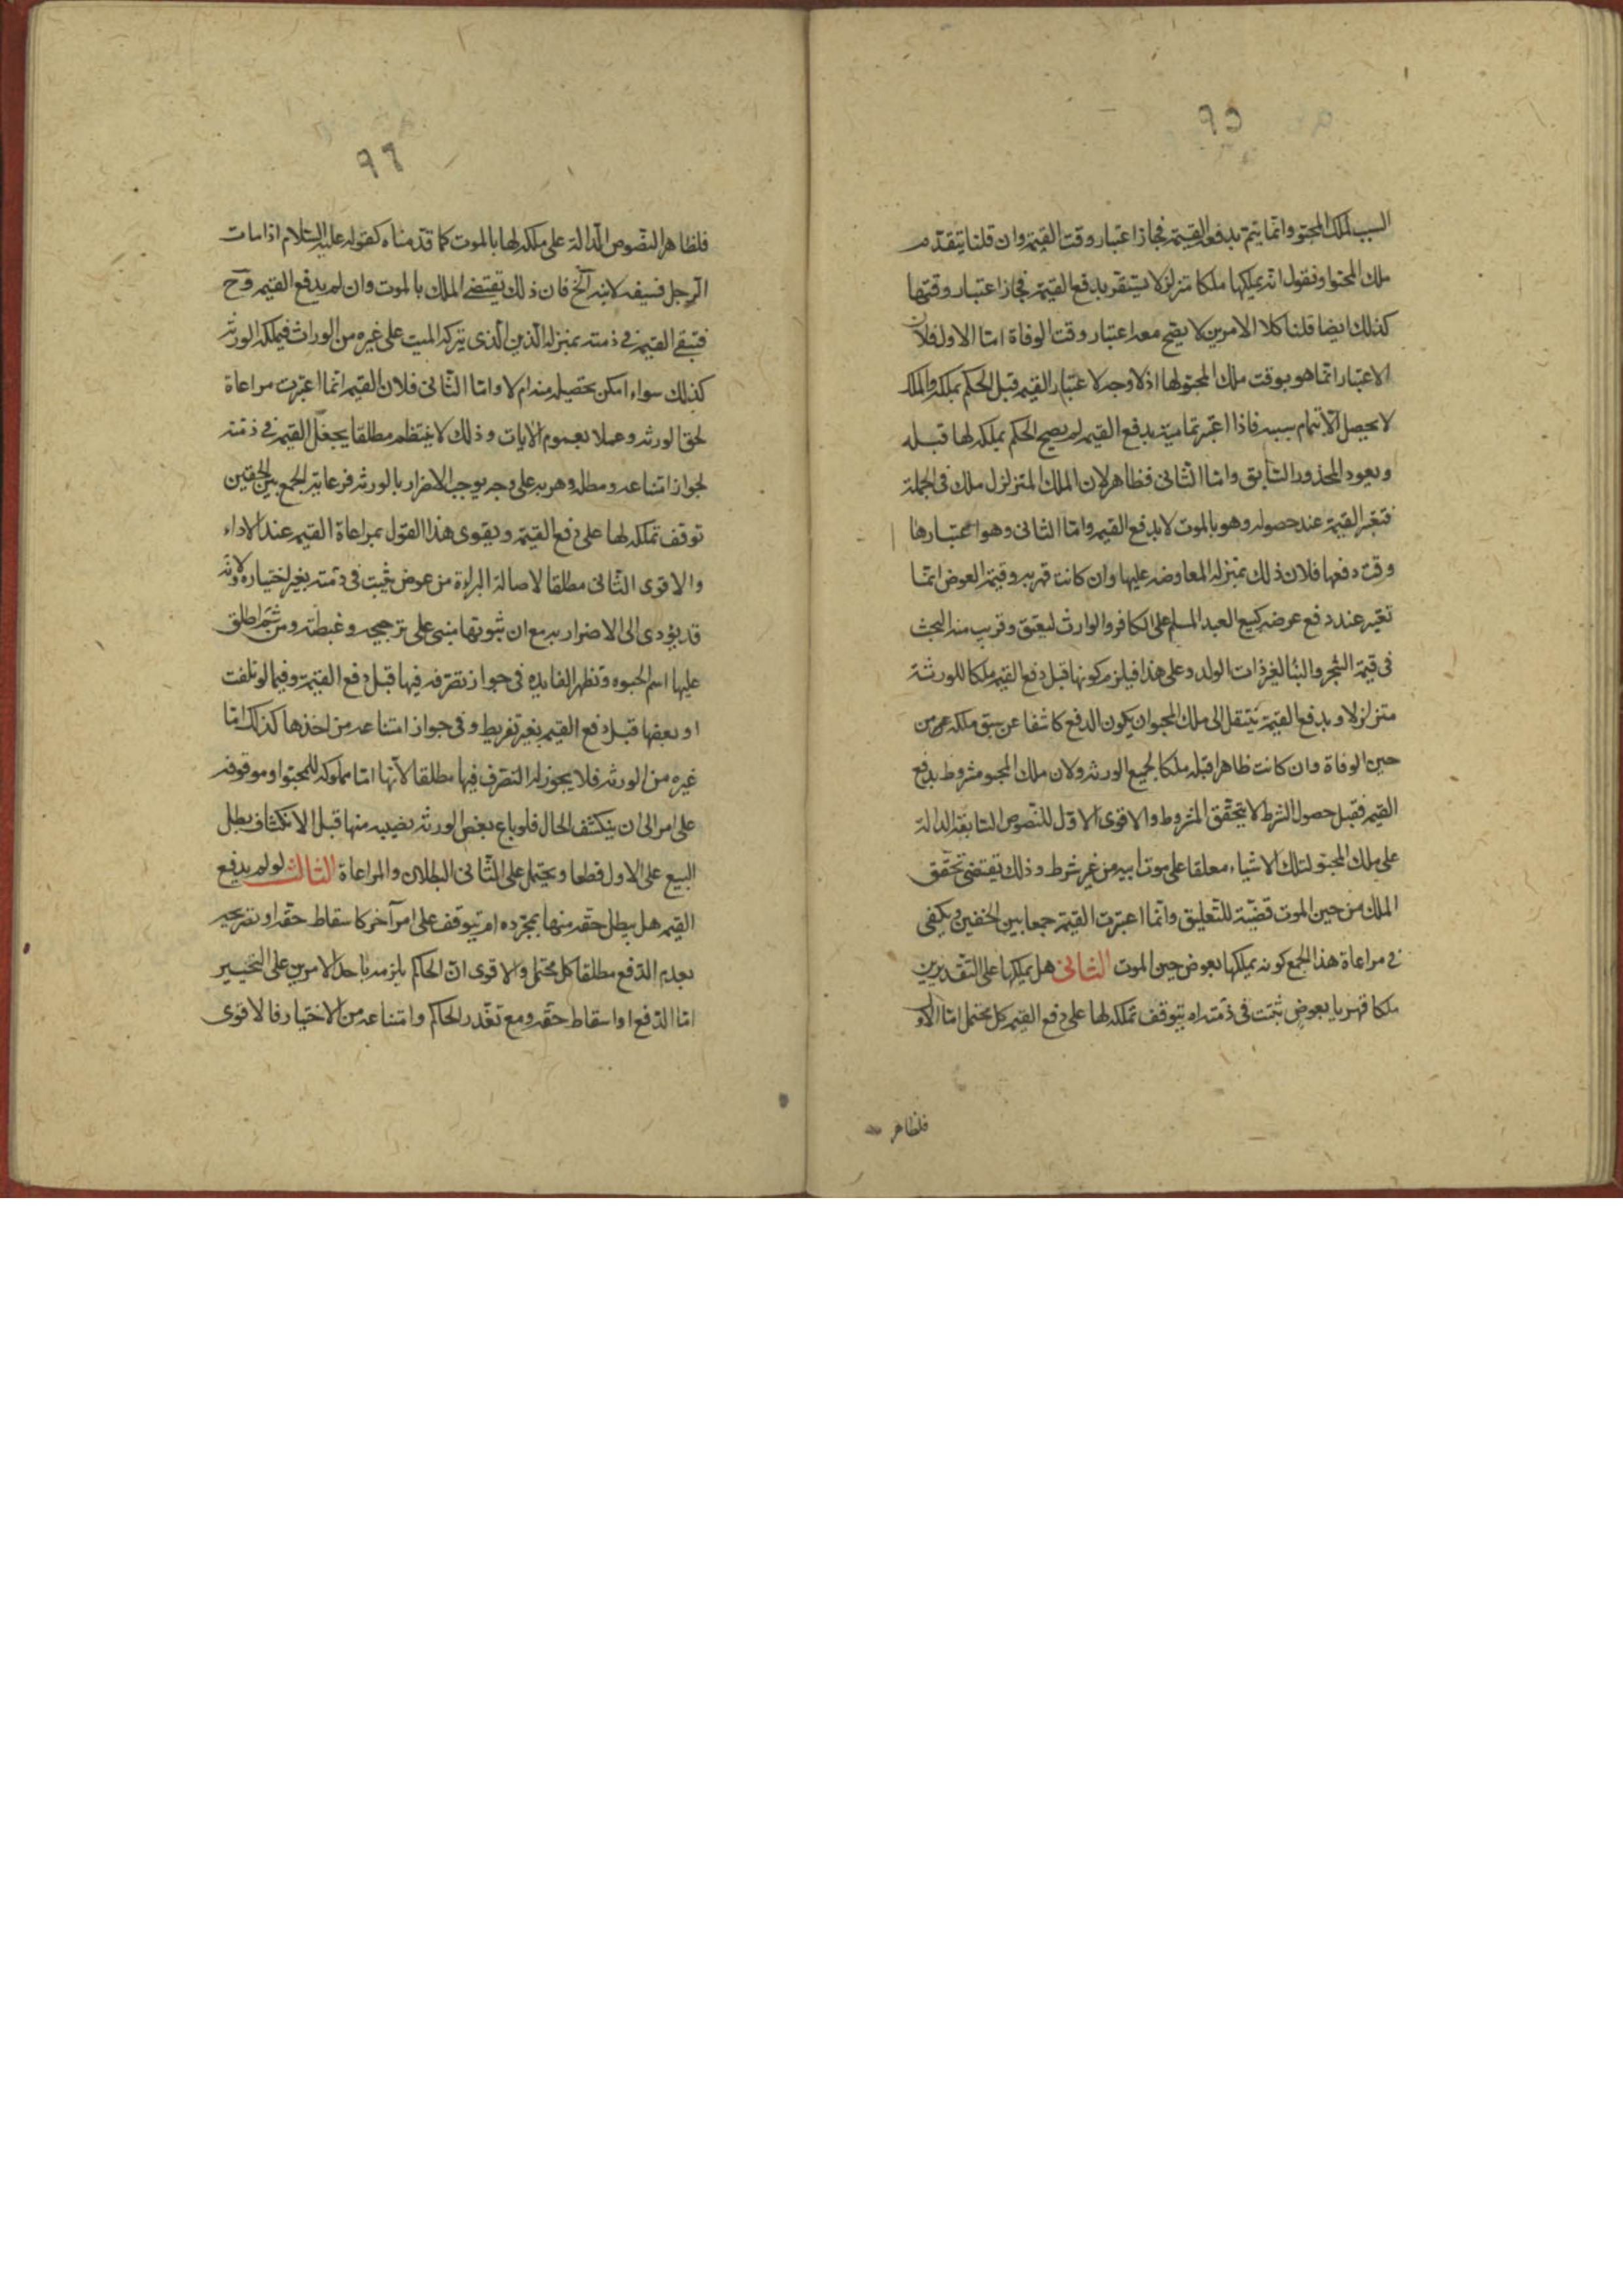 ٩٥
السبب لملك المحبو وانما يتم بدفع القيمة فجاز اعتبار وقت القيمة وان قلنا يتقدم
ملك المحبو او نقول انه يملكها ملكا متزلزلا يستقر بدفع القيمة فجاز اعتبار وقتها
كذلك ايضا قلنا كلا الامرين لا يصح معه اعتبار وقت الوفاة امّا الاول فلان
الاعتبار انّما هو بوقت ملك المحبو لها اذ لا وجه لاعتبار القيمه قبل الحكم بملكه والملك
لا يحصل الّا بتمام سببه فاذا اعتبر تماميته بدفع القيمه لم يصح الحكم بملكه لها قبله
ويعود المحذور السّابق وامّا الثّانى فظاهر لان الملك المتزلزل ملك فى الجملة
فتعتبر القيمة عند حصوله وهو بالموت لا بدفع القيمه وامّا الثانى وهو اعتبارها
وقت دفعها فلان ذلك بمنزله المعاوضه عليها وان كانت قهريه وقيمة العوض انّما
تعتبر عند دفع عوضه كبيع العبد المسلم على الكافر والوارث ليعتق وقريب منه البحث
فى قيمة الشجر والبناء لغير ذات الولد وعلى هذا فيلزم كونها قبل دفع القيمه ملكا للورثة
متزلزلا وبدفع القيمة ينتقل الى ملك المحبو ان يكون الدفع كاشفا عن سبق ملكه من
حين الوفاة وان كانت ظاهرا قبله ملكا لجميع الورثه ولان ملك المحبو مشروط بدفع
القيمه فقبل حصول الشرط لا يتحقّق المشروط والاقوى الاوّل للنّصوص السّابقة الدالة
على ملك المحبو لتلك الاشياء معلقا على موت ابيه من غير شرط وذلك يقتضى تحقّق
الملك من حين الموت قضيّة للتّعليق وانّما اعتبرت القيمة جمعا بين الحقين ويكفى
فى مراعاة هذا الجمع كونه يملكها بعوض حين الموت الثانى هل يملكها على التقديرين
ملكا قهريا بعوض يثبت فى ذمّته ام يتوقف تملكه لها على دفع القيمه كل يحتمل امّا الاوّل
فلظاهر
٩٦
فلظاهر النصّوص الدّالة على ملكه لها بالموت كما قدّمناه كقوله عليه السّلام اذا مات
الرّجل فسيفه لابنه آلخ فان ذلك يقتضى الملك بالموت وان لم يدفع القيمه وح
فتبقى القيمة فى ذمته بمنزله الّذين الّذى يتركه الميت على غيره من الوراث فيملكه الورثه
كذلك سواء امكن تحصيله منه ام لا وامّا الثّانى فلان القيمه انّما اعتبرت مراعاة
لحق الورثه وعملا بعموم الايات وذلك لا ينتظم مطلقا بجعل القيمة فى ذمّته
لجواز امتناعه ومطله وهربه على وجه يوجب الاضرار بالورثه فرعاية الجمع بين الحقين
توقف تملكه لها على دفع القيمة ويقوى هذا القول بمراعاة القيمه عند الاداء
والاقوى الثّانى مطلقا لاصالة البراءة من عوض يثبت فى ذمّته بغير اختياره ولانه
قد يؤدى الى الاضرار به مع ان ثبوتها مبنى على ترجيحه وغبطته ومن ثم اطلق
عليها اسم الحبوه وتظهر الفايده فى جواز تصرّفه فيها قبل دفع القيمة وفيما لو تلفت
او بعضها قبل دفع القيمه بغير تفريط وفى جواز امتناعه من اخذها كذلك امّا
غيره من الورثه فلا يجوز له التصرّف فيها مطلقا لانّها امّا مملوكه للمحبو او موقوفه
على امر الى ان ينكشف الحال فلو باع بعض الورثه نصيبه منها قبل الانكشاف بطل
البيع على الاول قطعا ويحتمل على الثّانى البطلان والمراعاة الثالث لو لم يدفع
القيمه هل يبطل حقّه منها بمجرّده ام يتوقف على امر آخر كاسقاط حقّه او تصريحه
بعدم الدّفع مطلقا كل محتمل والاقوى انّ الحاكم يلزمه باحد الامرين على التّخيير
امّا الدّفع او اسقاط حقّه ومع تعّذر الحاكم وامتناعه من الاختيار فالاقوى